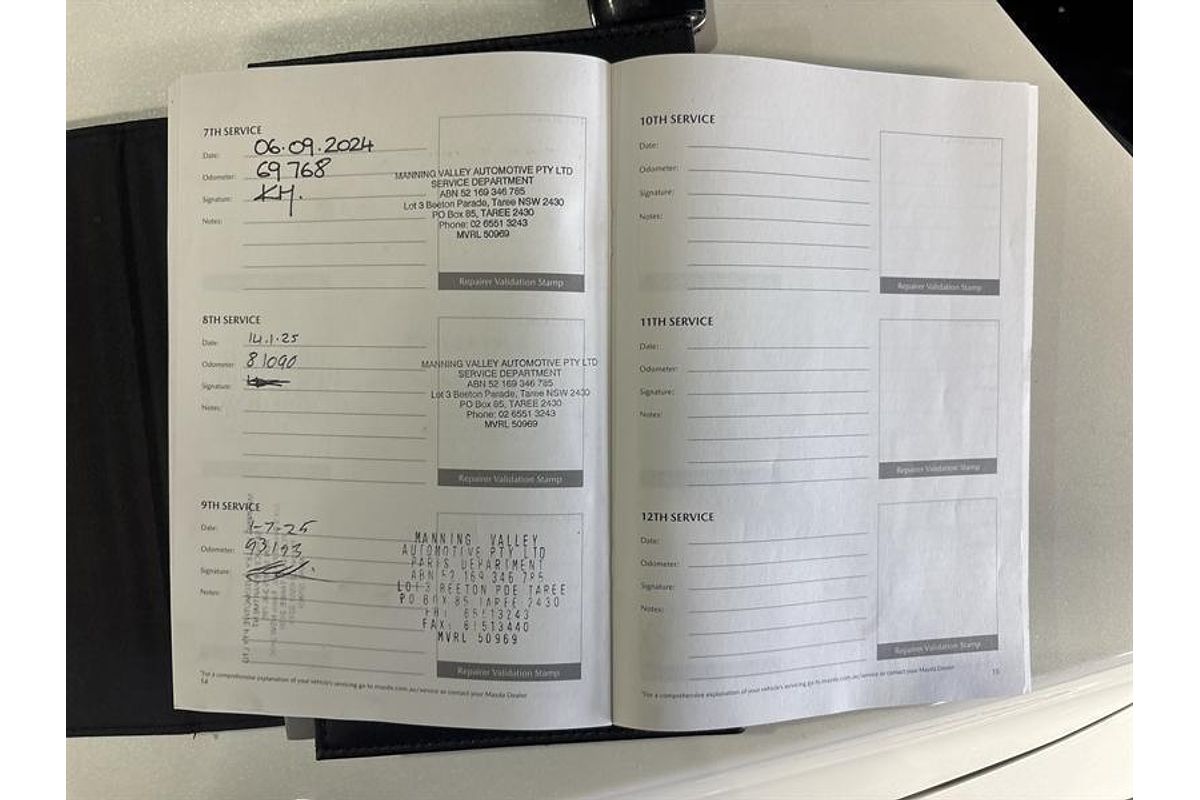 7TH SERVICE
Date: 06.09.2024
Odometer: 69768
Signature: KM.
Notes:
MANNING VALLEY AUTOMOTIVE PTY LTD
SERVICE DEPARTMENT
ABN 52 169 346 785
Lot 3 Beeton Parade, Taree NSW 2430
PO Box 85, TAREE 2430
Phone: 02 6551 3243
MVRL 50969
Repairer Validation Stamp
8TH SERVICE
Date: 14.1.25
Odometer: 81090
Signature:
Notes:
MANNING VALLEY AUTOMOTIVE PTY LTD
SERVICE DEPARTMENT
ABN 52 169 346 785
Lot 3 Beeton Parade, Taree NSW 2430
PO Box 85, TAREE 2430
Phone: 02 6551 3243
MVRL 50969
Repairer Validation Stamp
9TH SERVICE
Date: 1-7-25
Odometer: 93193
Signature:
Notes:
MANNING VALLEY
AUTOMOTIVE PTY LTD
PARTS DEPARTMENT
ABN 52 169 346 785
LOT 3 BEETON PDE TAREE
PO BOX 85 TAREE 2430
PH: 65513243
FAX: 61513440
MVRL 50969
Repairer Validation Stamp
*For a comprehensive explanation of your vehicle's servicing go to mazda.com.au/service or contact your Mazda Dealer
14
10TH SERVICE
Date:
Odometer:
Signature:
Notes:
Repairer Validation Stamp
11TH SERVICE
Date:
Odometer:
Signature:
Notes:
Repairer Validation Stamp
12TH SERVICE
Date:
Odometer:
Signature:
Notes:
Repairer Validation Stamp
*For a comprehensive explanation of your vehicle's servicing go to mazda.com.au/service or contact your Mazda Dealer
15